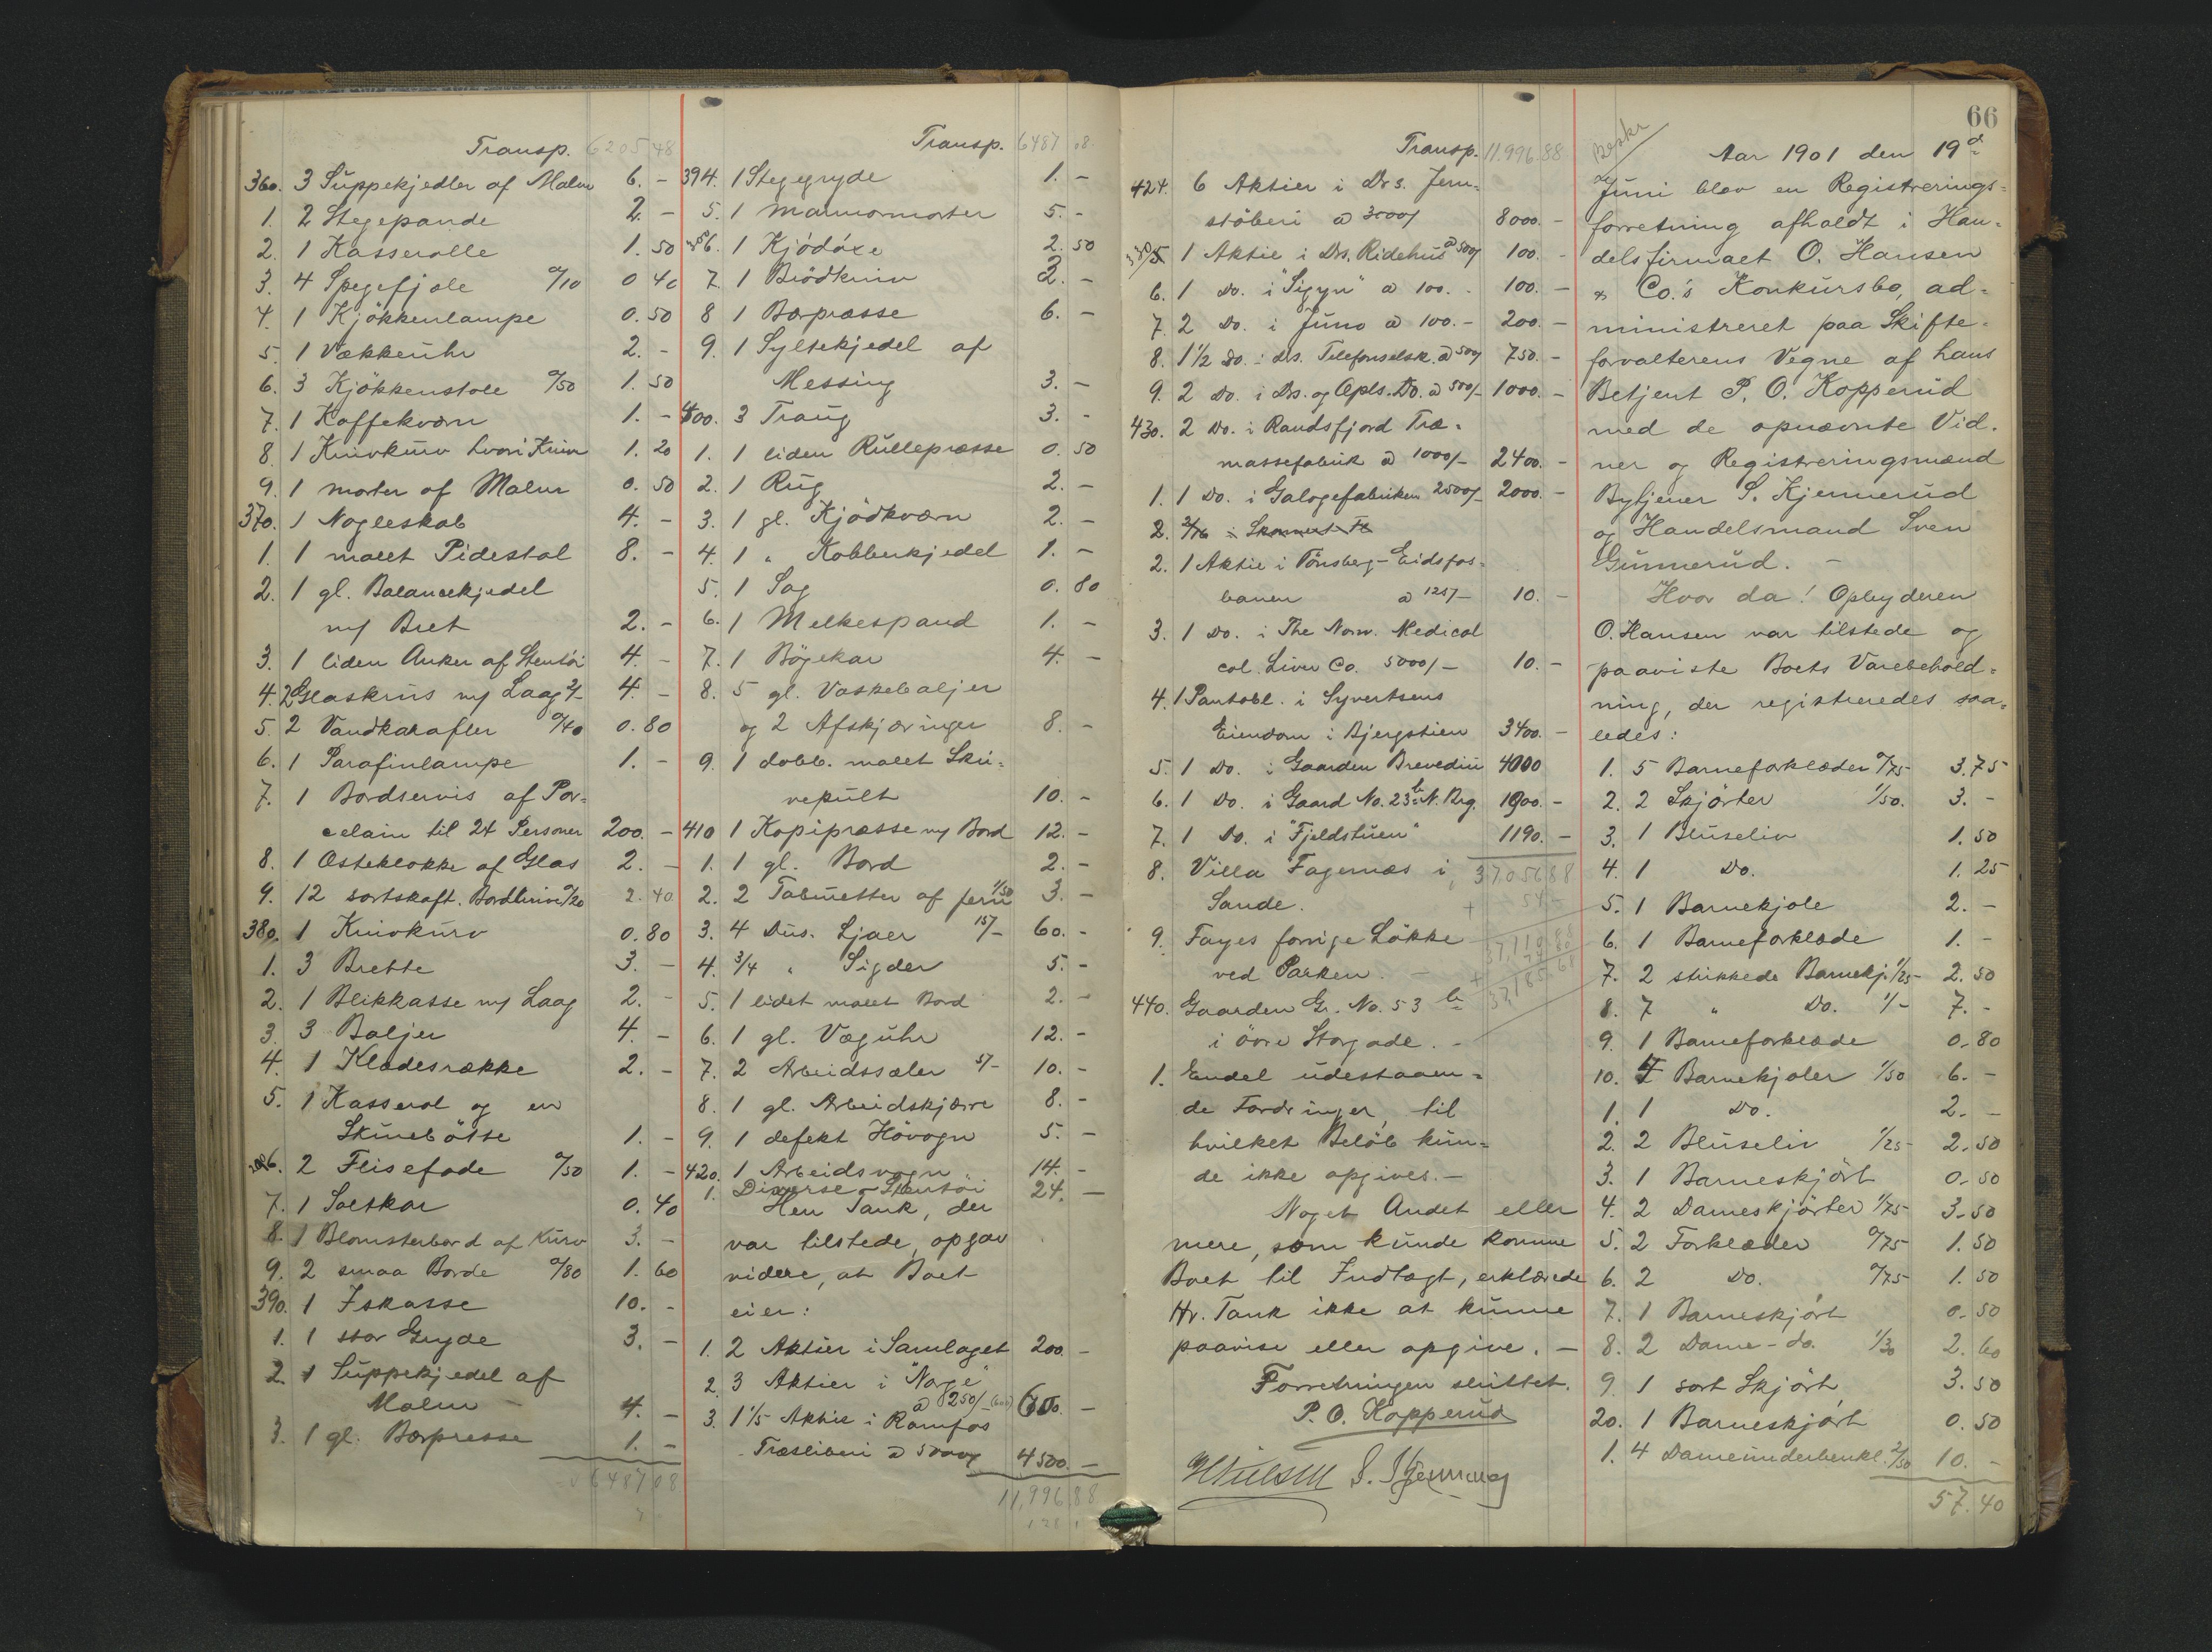 Transp. 6205 48
360. 3 Suppekjedler af Malm 6. -
1. 2 Stegepande 2. -
2. 1 Kasserolle 1.50
3. 4 Spegefjøle 0/10 0 40
4. 1 Kjökkenlampe 0.50
5. 1 Vækkeuhr 2. -
6. 3 Kjökkenstole 0/50 1.50
7. 1 Kaffekværn 1. -
8. 1 Knivkurv hvori Kniv 1.20
9. 1 morter af Malm 0.50
370. 1 Nøgleskab 4. -
1. 1 malet Pidestal 8. -
2. 1 gl. Balancekjedel
m/ Bret 2. -
3. 1 liden Anker af Stentöi 4. -
4. 2 Glaskrus m/ Laag 2/- 4. -
5. 2 Vandkarafler 0/40 0.80
6. 1 Parafinlampe 1. -
7. 1 Bordservis af Por=
celain til 24 Personer 200. -
8. 1 Osteklokke af Glas 2. -
9. 12 sortskaft. Bordknive 0/20 2.40
380. 1 Knivkurv 0.80
1. 3 Brette 3. -
2. 1 Blikkasse m/ Laag 2. -
3. 3 Baljer 4. -
4. 1 Klædesrække 2. -
5. 1 Kasserol og en
Skurebötte 1. -
6. 2 Flisefade 0/50 1. -
7. 1 Saltkar 0.40
8. 1 Blomsterbord af Kurv 3. -
9. 2 smaa Borde 0/80 1.60
390. 1 Iskasse 10. -
1. 1 stor Gryde 3. -
2. 1 Suppekjedel af
Malm - 4. -
3. 1 gl. Bærpresse 1. -
6487 08
Transp. 6487 08
394. 1 Stegegryde 1. -
5. 1 Marmormorter 5. -
6. 1 Kjödöxe 2.50
7. 1 Brödkniv 2. -
8 1 Bærpresse 6. -
9. 1 Syltekjedel af
Messing 3. -
400. 3 Traug 3. -
1. 1 liden Rullepresse 0.50
2. 1 Rug 2. -
3. 1 gl. Kjödkværn 2. -
4. 1 " Kobberkjedel 1. -
5. 1 Sag 0.80
6. 1 Melkespand 1. -
7. 1 Bögekar 4. -
8. 5 gl. Vaskebaljer
og 2 Afskjæringer 8. -
9. 1 dobb. malet Skri=
vepult 10. -
410 1 Kopipresse m/ Bord 12. -
1. 1 gl. Bord 2. -
2. 2 Taburetter af Jern 1/50 3. -
3. 4 Dus. Ljaer 15/- 60. -
4. 3/4 " Sigder 5. -
5. 1 lidet malet Bord 2. -
6. 1 gl. Væguhr 12. -
7. 2 Arbeidssæler 5/- 10. -
8. 1 gl. Arbeidskjærre 8. -
9. 1 defekt Hövogn 5. -
420. 1 Arbeidsvogn. 14. -
1. Diverse Stentöi 24. -
Herr Tank, der
var tilstede, opgav
videre, at Boet
eier:
1. 2 Aktier i Samlaget 200. -
2. 3 Aktier i "Norge"
a 250/- 600. -
3. 1 1/5 Aktie i Ramfos
Træsliberi a 5000/ 4500. -
11,996 88
Transp. 11.996 88
424. 6 Aktier i Drs. Jern=
stöberi a 3000/ 8000. -
5. 1 Aktie i Drs. Ridehus a 500/ 100. -
6. 1 Do. i "Sigyn" a 100. - 100. -
7. 2 Do. i Juno a 100. - 200. -
8. 1 1/2 Do. i Drs. Telefonselsk. a 500/ 750. -
9. 2 Do. i Drs. og Opls. Do. a 500/- 1000. -
430. 2 Do. i Randsfjord Træ=
massefabrik a 1000/- 2400. -
1. 1 Do. i Galogefabriken 2500/- 2000. -
2. 2/16 i
2. 1 Aktie i Tönsberg-Eidsfos-
banen a 125/- 10. -
3. 1 Do. i The Norw. Medical
col. Liver Co. 5000/- 10. -
4. 1 Pantobl. i Syvertsens
Eiendom i Bjergstien 3400. -
5. 1 Do. i Gaarden Brevedin 4000
6. 1 Do. i Gaard No. 23 b N. Brg. 1900. -
7. 1 Do. i "Fjeldstuen" 1190. -
8. Villa Fagernæs i 37056 88
Sande. + 54 -
9. Fayes forrige Lökke
ved Parken. -
440. Gaarden Gr. No. 53 b
i övre Storgade. -
1. Endel udestaaen=
de Fordringer, til
hvilket Belöb kun=
de ikke opgives. -
Noget Andet eller
mere, som kunde komme
Boet til Indtægt, erklærede
Hr. Tank ikke at kunne
paavise eller opgive. -
Forretningen sluttet.
P. O. Kopperud
HNielsen S. Kjennerud
66
Beskr
Aar 1901 den 19de
Juni blev en Registrerings=
forretning afholdt i Han=
delsfirmaet O. Hansen
& Co.'s Konkursbo, ad=
ministreret paa Skifte=
forvalterens Vegne af hans
Betjent P. O. Kopperud
med de opnævnte Vid.
ner og Registreringsmænd
Bytjener S. Kjennerud
og Handelsmand Sven
Gunnerud. -
Hvor da! Opbyderen
O. Hansen var tilstede og
paaviste Boets Varebehold=
ning, der registreredes saa=
ledes:
1. 5 Barneforklæder 0/75 3.75
2. 2 Skjörter 1/50. 3. -
3. 1 Bluseliv 1.50
4. 1 Do. 1.25
5. 1 Barnekjole 2. -
6. 1 Barneforklæde 1. -
7. 2 strikkede Barnekj. 1/25 2.50
8. 7 " Do. 1/- 7. -
9. 1 Barneforklæde 0.80
10. 4 Barnekjoler 1/50 6. -
1. 1 Do. 2. -
2. 2 Bluseliv 1/25 2.50
3. 1 Barneskjört 0.50
4. 2 Dameskjörter 1/75 3.50
5. 2 Forklæder 0/75 1.50
6. 2 Do. 0/75 1.50
7. 1 Barneskjört 0.50
8. 2 Dame-do. 1/30 2.60
9. 1 sort Skjört 3.50
20. 1 Barneskjört 0.50
1. 4 Dameunderbenkl. 2/50 10. -
57.40